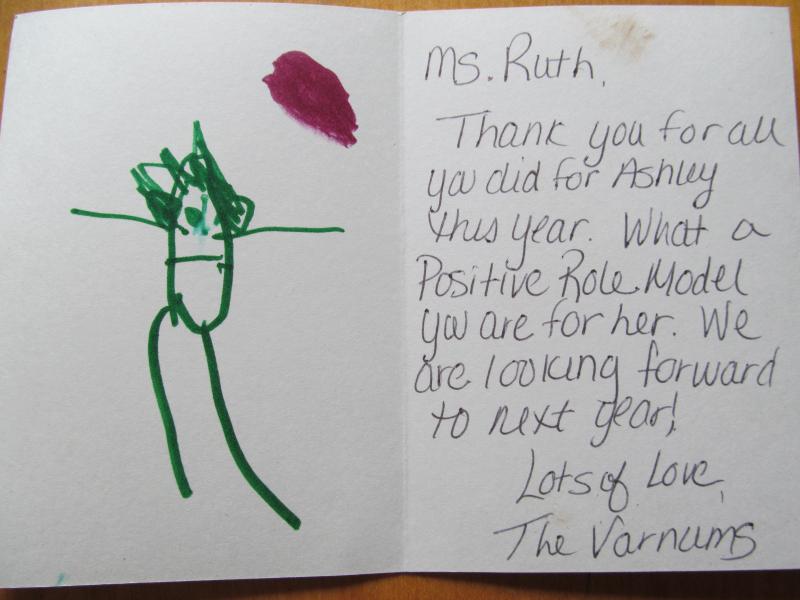 Ms. Ruth,
Thank you for all
you did for Ashley
this year. What a
Positive Role Model
you are for her. We
are looking forward
to next year!
Lots of Love,
The Varnums